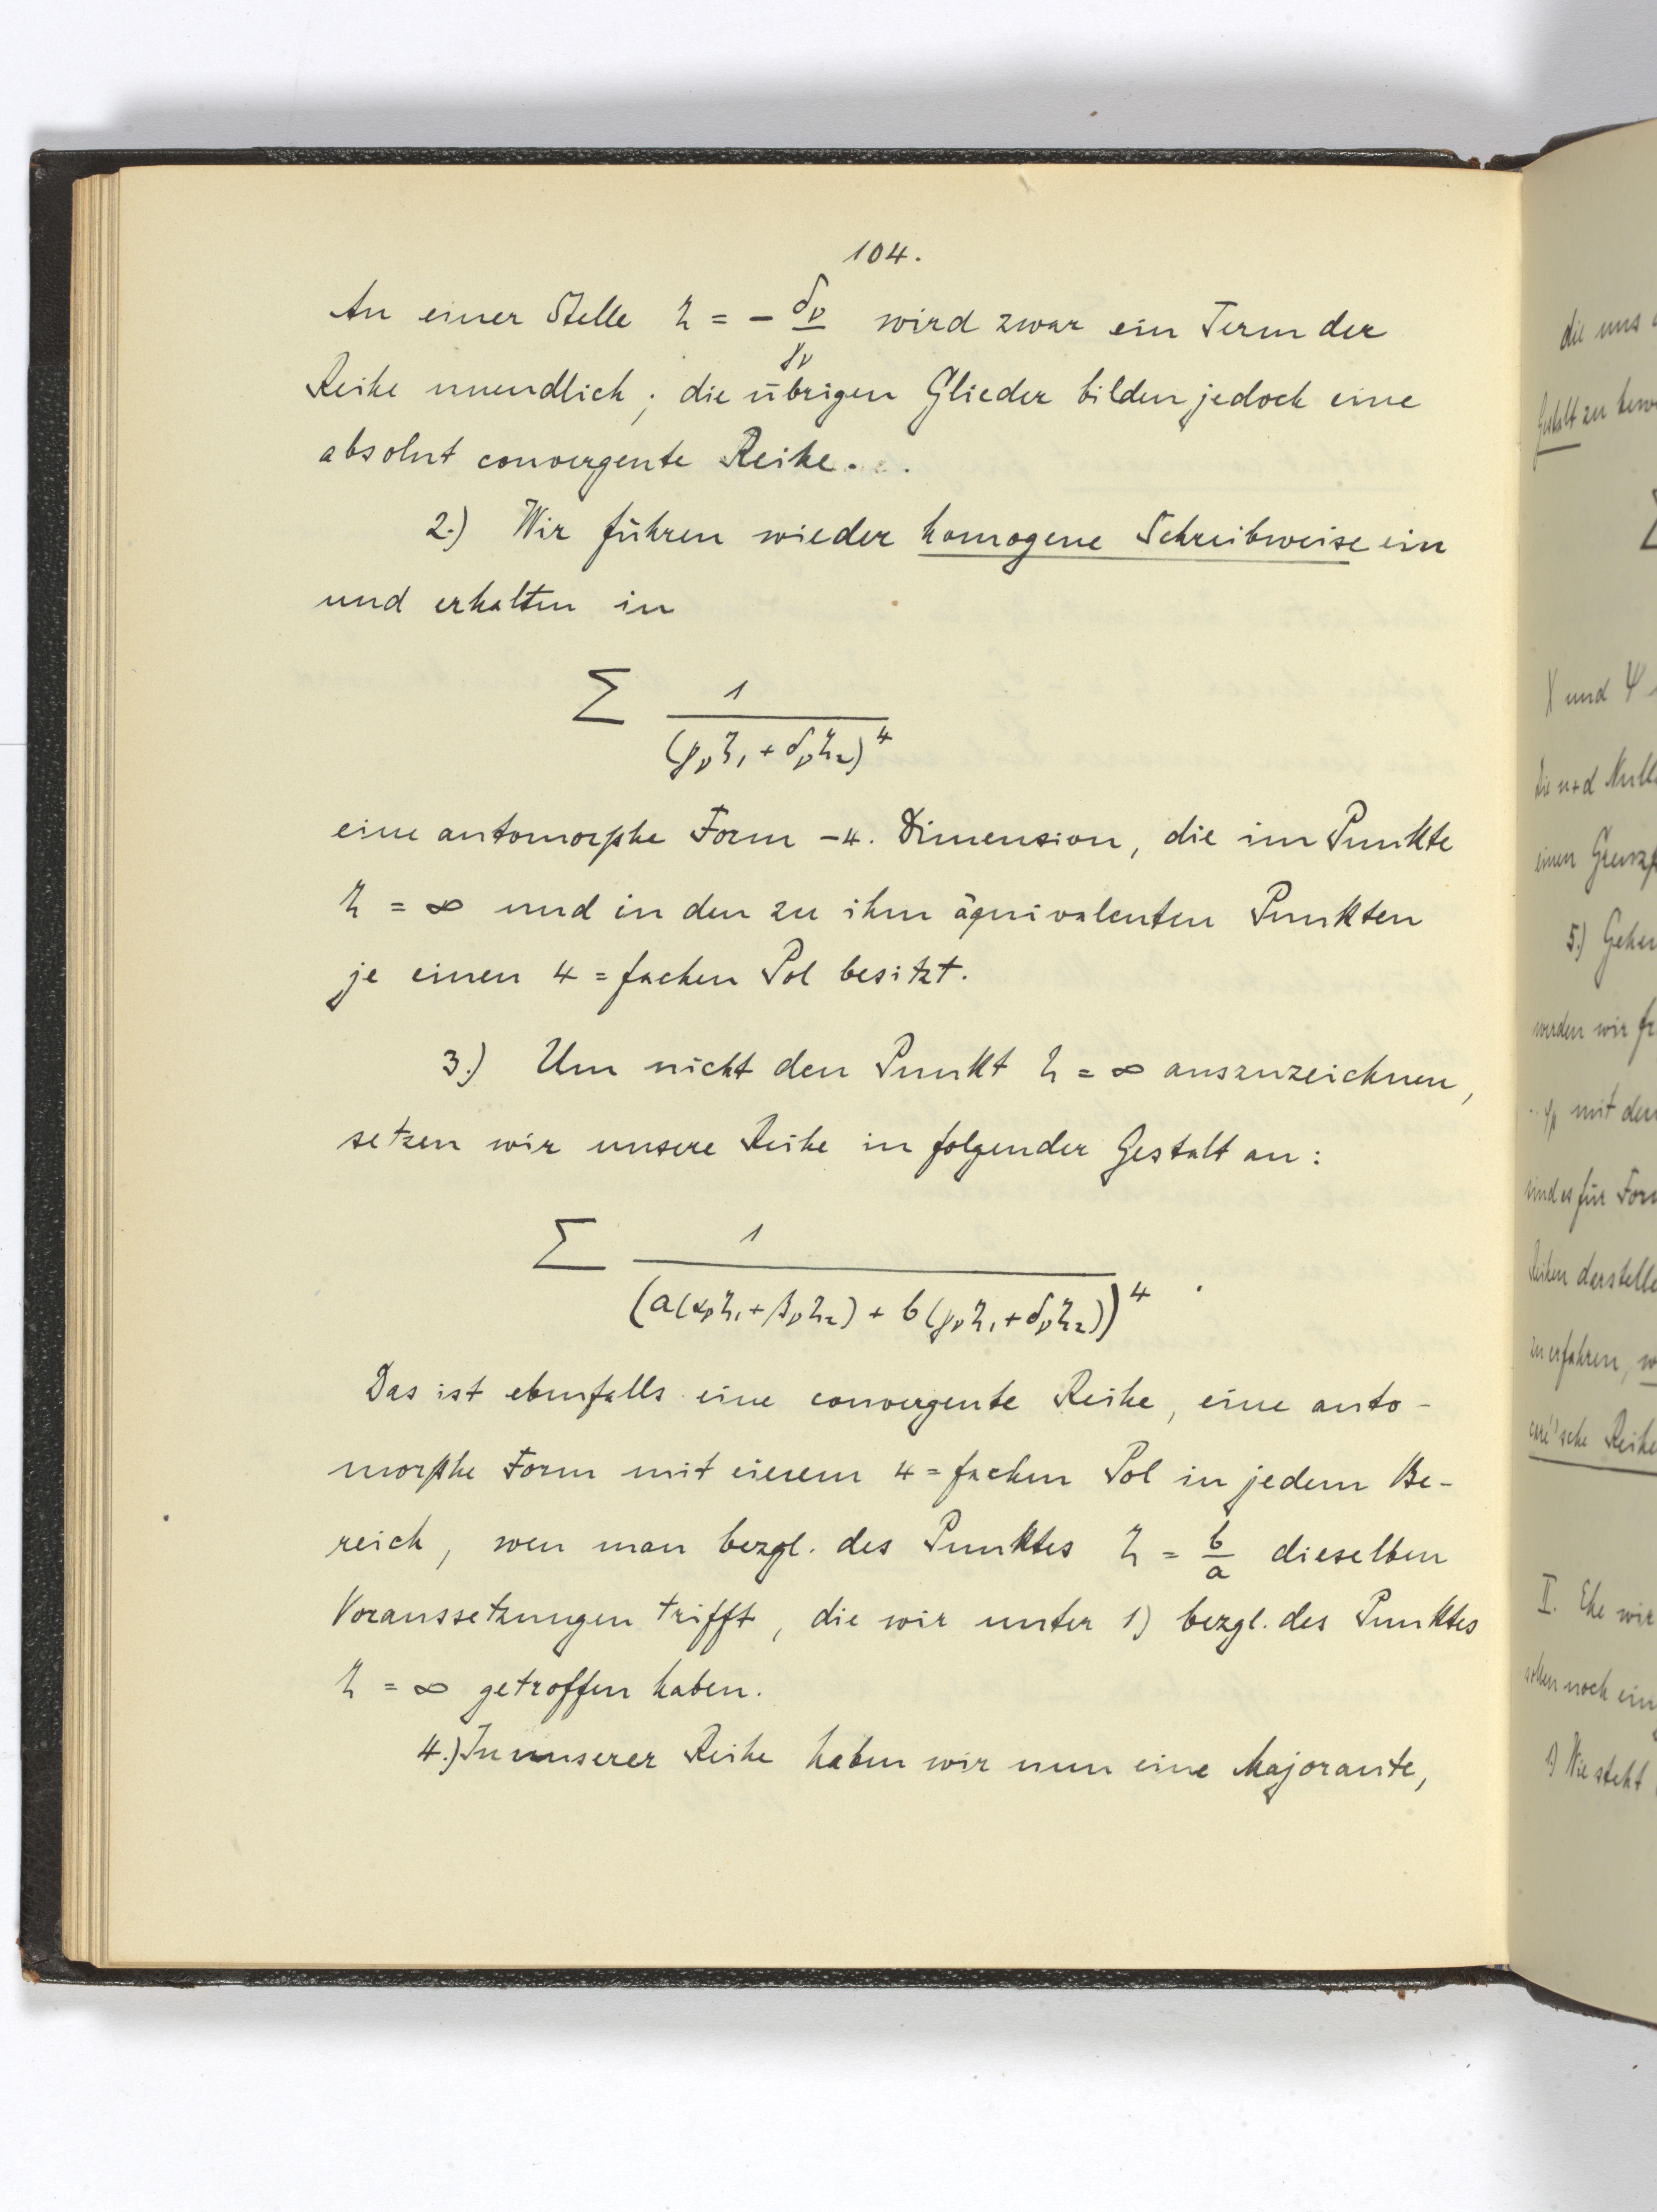 104.
An einer Stelle η = − δν/γν wird zwar ein Term der
Reihe unendlich; die übrigen Glieder bilden jedoch eine
absolut convergente Reihe.
2.) Wir führen wieder homogene Schreibweise ein
und erhalten in
Σ 1/(γν η₁ + δν η₂)⁴
eine automorphe Form −4. Dimension, die im Punkte
η = ∞ und in den zu ihm äquivalenten Punkten
je einen 4=fachen Pol besitzt.
3.) Um nicht den Punkt η = ∞ auszuzeichnen,
setzen wir unsere Reihe in folgender Gestalt an:
Σ 1/(a(αν η₁ + βν η₂) + b(γν η₁ + δν η₂))⁴ .
Das ist ebenfalls eine convergente Reihe, eine auto-
morphe Form mit einem 4=fachen Pol in jedem Be-
reich, wen man bezgl. des Punktes η = b/a dieselben
Voraussetzungen trifft, die wir unter 1) bezgl. des Punktes
η = ∞ getroffen haben.
4.) In unserer Reihe haben wir nun eine Majorante,
die uns
Gestalt zu
X und Ψ
Die n+d
einen
5.) Gehen
werden wir
mit den
sind es für
Reihen
zu erfahren,
Reihe
II. Ehe wir
noch ein
1) Wie steht